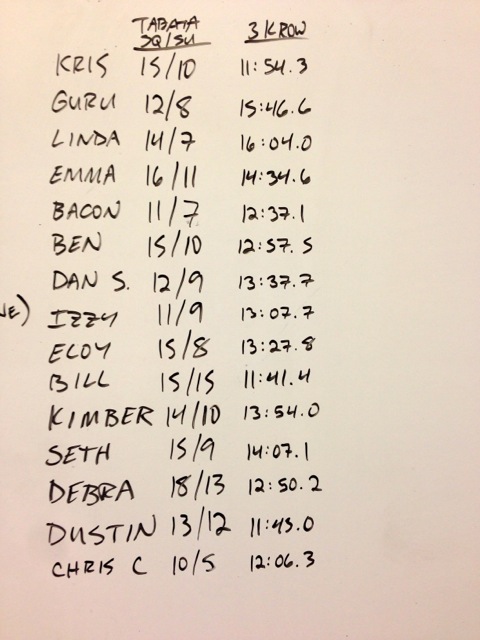 TABATA 3K ROW
SQ/SU
KRIS 15/10 11:54.3
GURU 12/8 15:46.6
LINDA 14/7 16:04.0
EMMA 16/11 14:34.6
BACON 11/7 12:37.1
BEN 15/10 12:57.5
DAN S. 12/9 13:37.7
IZZY 11/9 13:07.7
ELOY 15/8 13:27.8
BILL 15/15 11:41.4
KIMBER 14/10 13:54.0
SETH 15/9 14:07.1
DEBRA 18/13 12:50.2
DUSTIN 13/12 11:43.0
CHRIS C 10/5 12:06.3